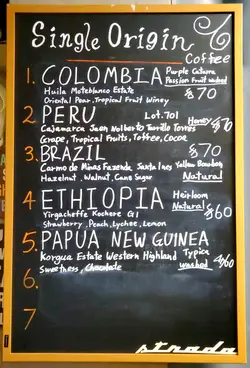 Single Origin
Coffee
1. COLOMBIA Purple Caturra
Passion Fruit washed
Huila Monteblanco Estate $70
Oriental Pear, Tropical Fruit Winey
2. PERU Lot. 701 Honey $70
Cajamarca Jaen Nolberto Tarrillo Torres
Grape, Tropical Fruits, Toffee, Cocoa
3. BRAZIL $70
Carmo de Minas Fazenda Santa Ines Yellow Bourbon
Hazelnut, Walnut, Cane Sugar Natural
4. ETHIOPIA Heirloom
Natural $60
Yirgacheffe Kochere G1
Strawberry, Peach, Lychee, Lemon
5. PAPUA NEW GUINEA
Korgua Estate Western Highland Typica
Sweetness, Chocolate washed $60
6.
7
strada